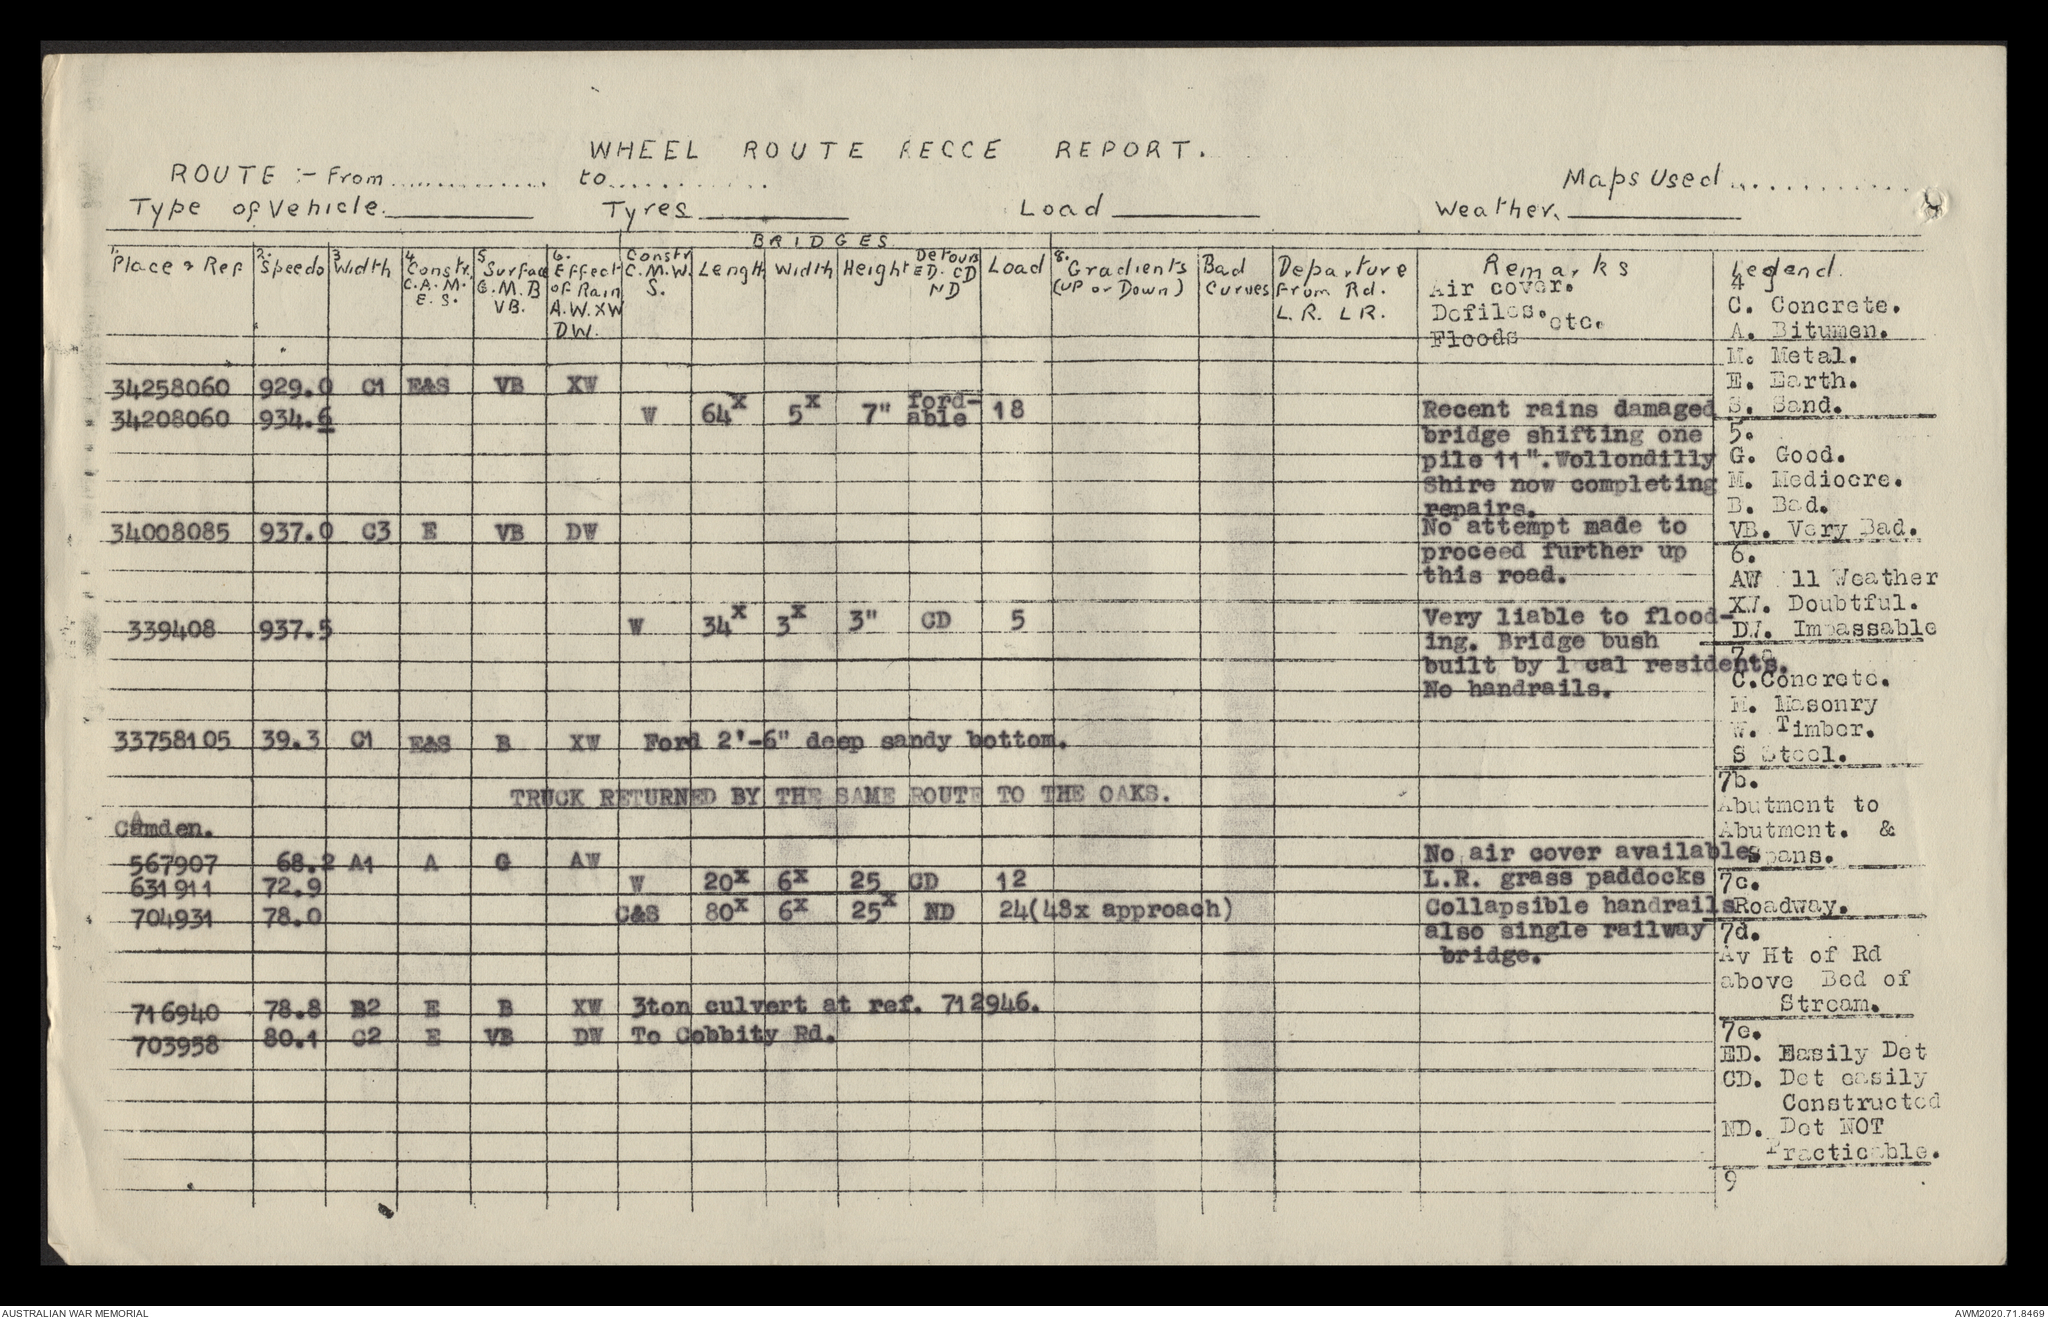 WHEEL ROUTE RECCE REPORT.
ROUTE :- From .............. to ...........
Maps Used ............
Type of Vehicle. Tyres Load Weather.
BRIDGES
1. Place & Ref
2. Speedo
3 Width
4 Constr. C.A.M. E.S.
5 Surface G.M.B VB.
6. Effect of Rain A.W. XW D.W.
Constr C.M.W. S.
Length
Width
Height
Detours ED. CD ND
Load
8. Gradients (UP or Down)
Bad Curves
Departure From Rd. L.R. L R.
Remarks
Air cover.
Defiles. etc.
Floods
34258060 929.0 C1 E&S VB XW
34208060 934.6 W 64x 5x 7" ford-able 18
Recent rains damaged
bridge shifting one
pile 11". Wollondilly
Shire now completing
repairs.
34008085 937.0 C3 E VB DW
No attempt made to
proceed further up
this road.
339408 937.5 W 34x 3x 3" CD 5
Very liable to flood-
ing. Bridge bush
built by l cal residents.
No handrails.
33758105 39.3 C1 E&S B XW Ford 2'-6" deep sandy bottom.
TRUCK RETURNED BY THE SAME ROUTE TO THE OAKS.
Camden.
567907 68.2 A1 A G AW
No air cover available.
631911 72.9 W 20x 6x 25 CD 12
L.R. grass paddocks
704931 78.0 C&S 80x 6x 25x ND 24(48x approach)
Collapsible handrails
also single railway
bridge.
716940 78.8 B2 E B XW 3ton culvert at ref. 712946.
703958 80.1 C2 E VB DW To Cobbity Rd.
Legend.
4
C. Concrete.
A. Bitumen.
M. Metal.
E. Earth.
S. Sand.
5.
G. Good.
M. Mediocre.
B. Bad.
VB. Very Bad.
6.
AW ll Weather
XW. Doubtful.
DW. Impassable
7a
C.Concrete.
M. Masonry
W. Timber.
S Steel.
7b.
Abutment to
Abutment. &
Spans.
7c.
Roadway.
7d.
Av Ht of Rd
above Bed of
Stream.
7e.
ED. Easily Det
CD. Det easily
Constructed
ND. Det NOT
Practicable.
9
AUSTRALIAN WAR MEMORIAL
AWM2020.71.8469